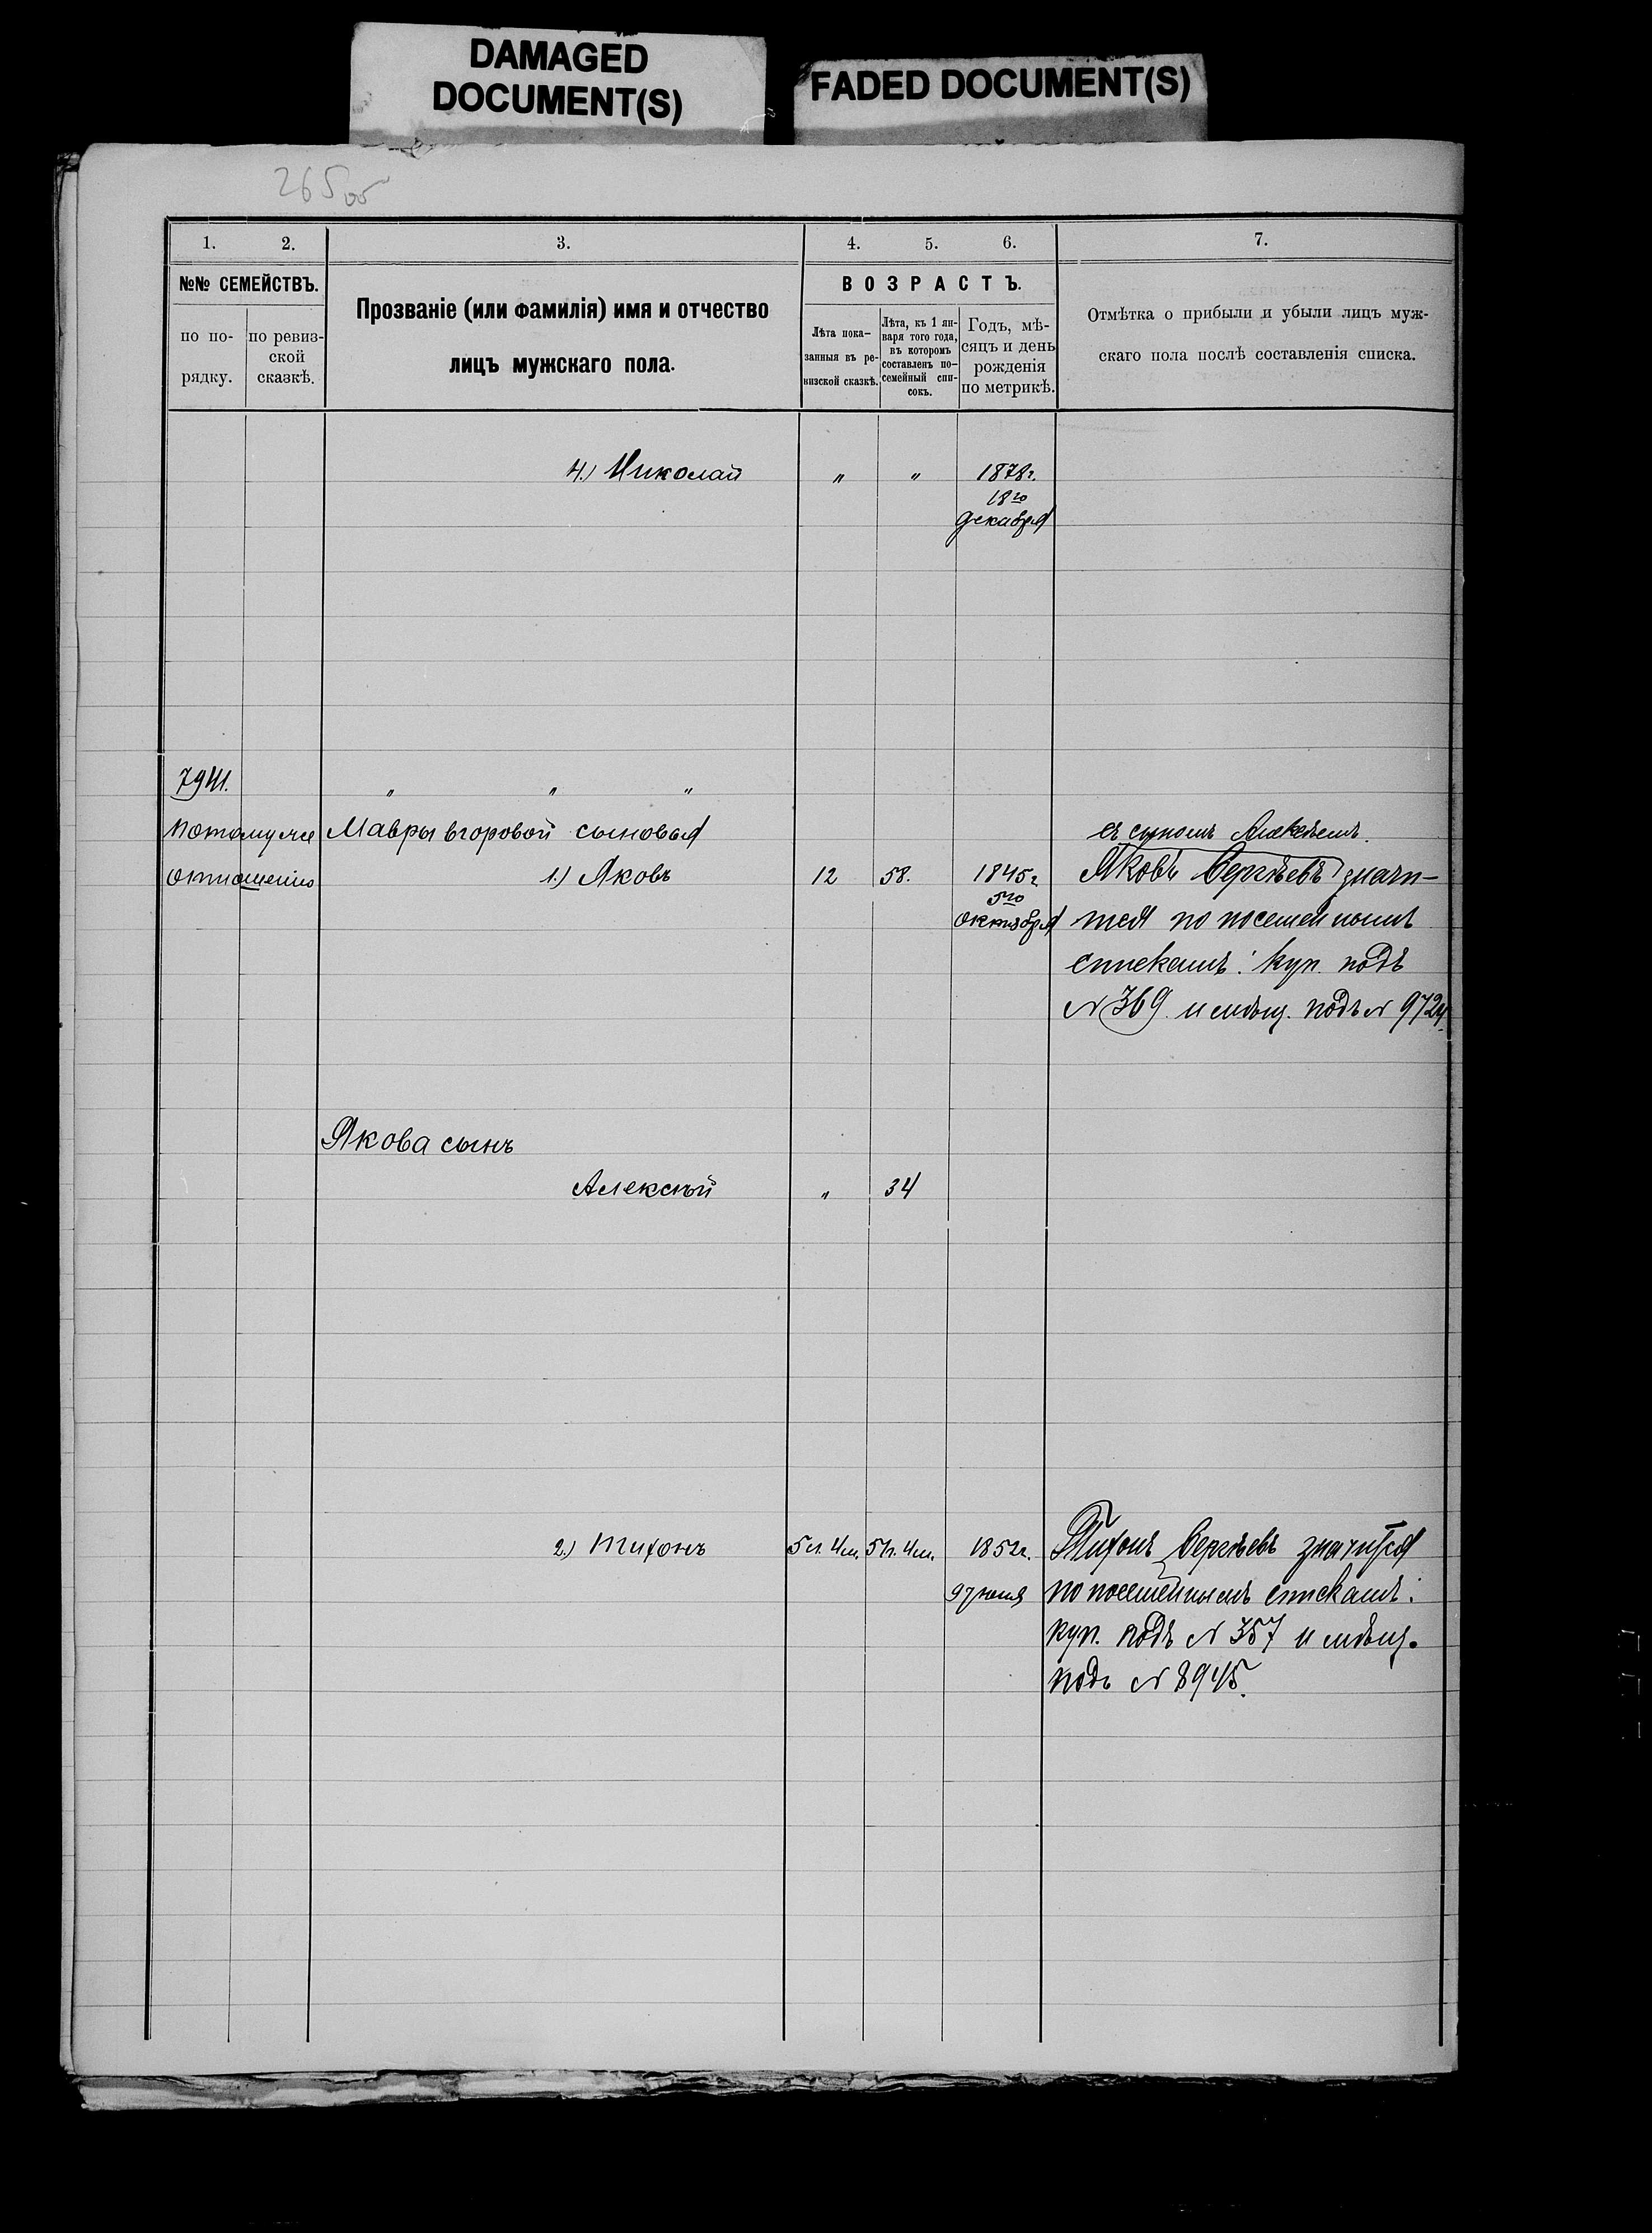 DAMAGED
DOCUMENT(S)
FADED DOCUMENT(S)
265 об
1. 2. 3. 4. 5. 6. 7.
№№ СЕМЕЙСТВЪ.
по по-
рядку.
по ревиз-
ской
сказкѣ.
Прозваніе (или фамилія) имя и отчество
лицъ мужскаго пола.
ВОЗРАСТЪ.
Лѣта пока-
занныя въ ре-
визской сказкѣ.
Лѣта, къ 1 ян-
варя того года,
въ которомъ
составленъ по-
семейный спи-
сокъ.
Годъ, мѣ-
сяцъ и день
рожденія
по метрикѣ.
Отмѣтка о прибыли и убыли лицъ муж-
скаго пола послѣ составленія списка.
4.) Николай " " 1878г.
18го
декабря
7941. " " "
потому же Мавры второвой сыновья съ сыномъ Алексѣемъ.
отношенію 1.) Яковъ 12 58. 1845г Яковъ Сергѣевъ значи-
5го
октября тся по посемейнымъ
спискамъ: куп. подъ
№ 369 и мѣщ. подъ № 9724.
Якова сынъ
Алексѣй " 34
2.) Тихонъ 5л. 4м. 51г. 4м. 1852г. Тихонъ Сергѣевъ значится
9 іюня по посемейнымъ спискамъ:
куп. подъ № 357 и мѣщ.
подъ № 8945.